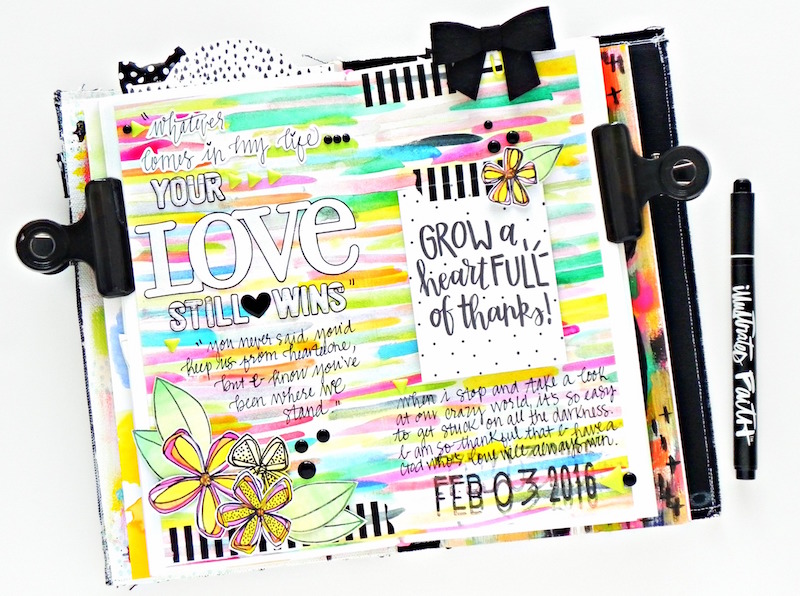 "Whatever
comes in my life...
YOUR
LOVE
STILL WINS"
"you never said you'd
keep us from heartache,
but I know you've
been where we
stand."
GROW a
heartFULL
of thanks!
When I stop and take a look
at our crazy world, it's so easy
to get stuck on all the darkness.
I am so thankful that I have a
God who's love will always win.
FEB 03 2016
illustrated Faith